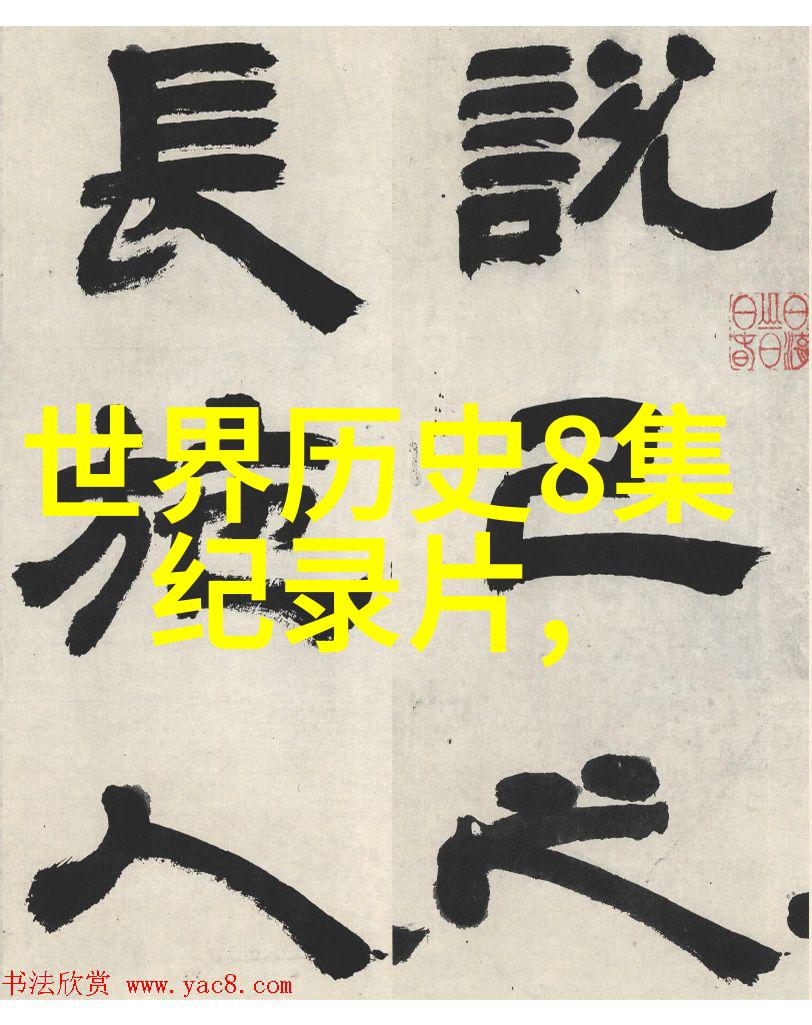 說己之
長施人
世界历史8集
纪录片,
书法欣赏 www.yac8.com